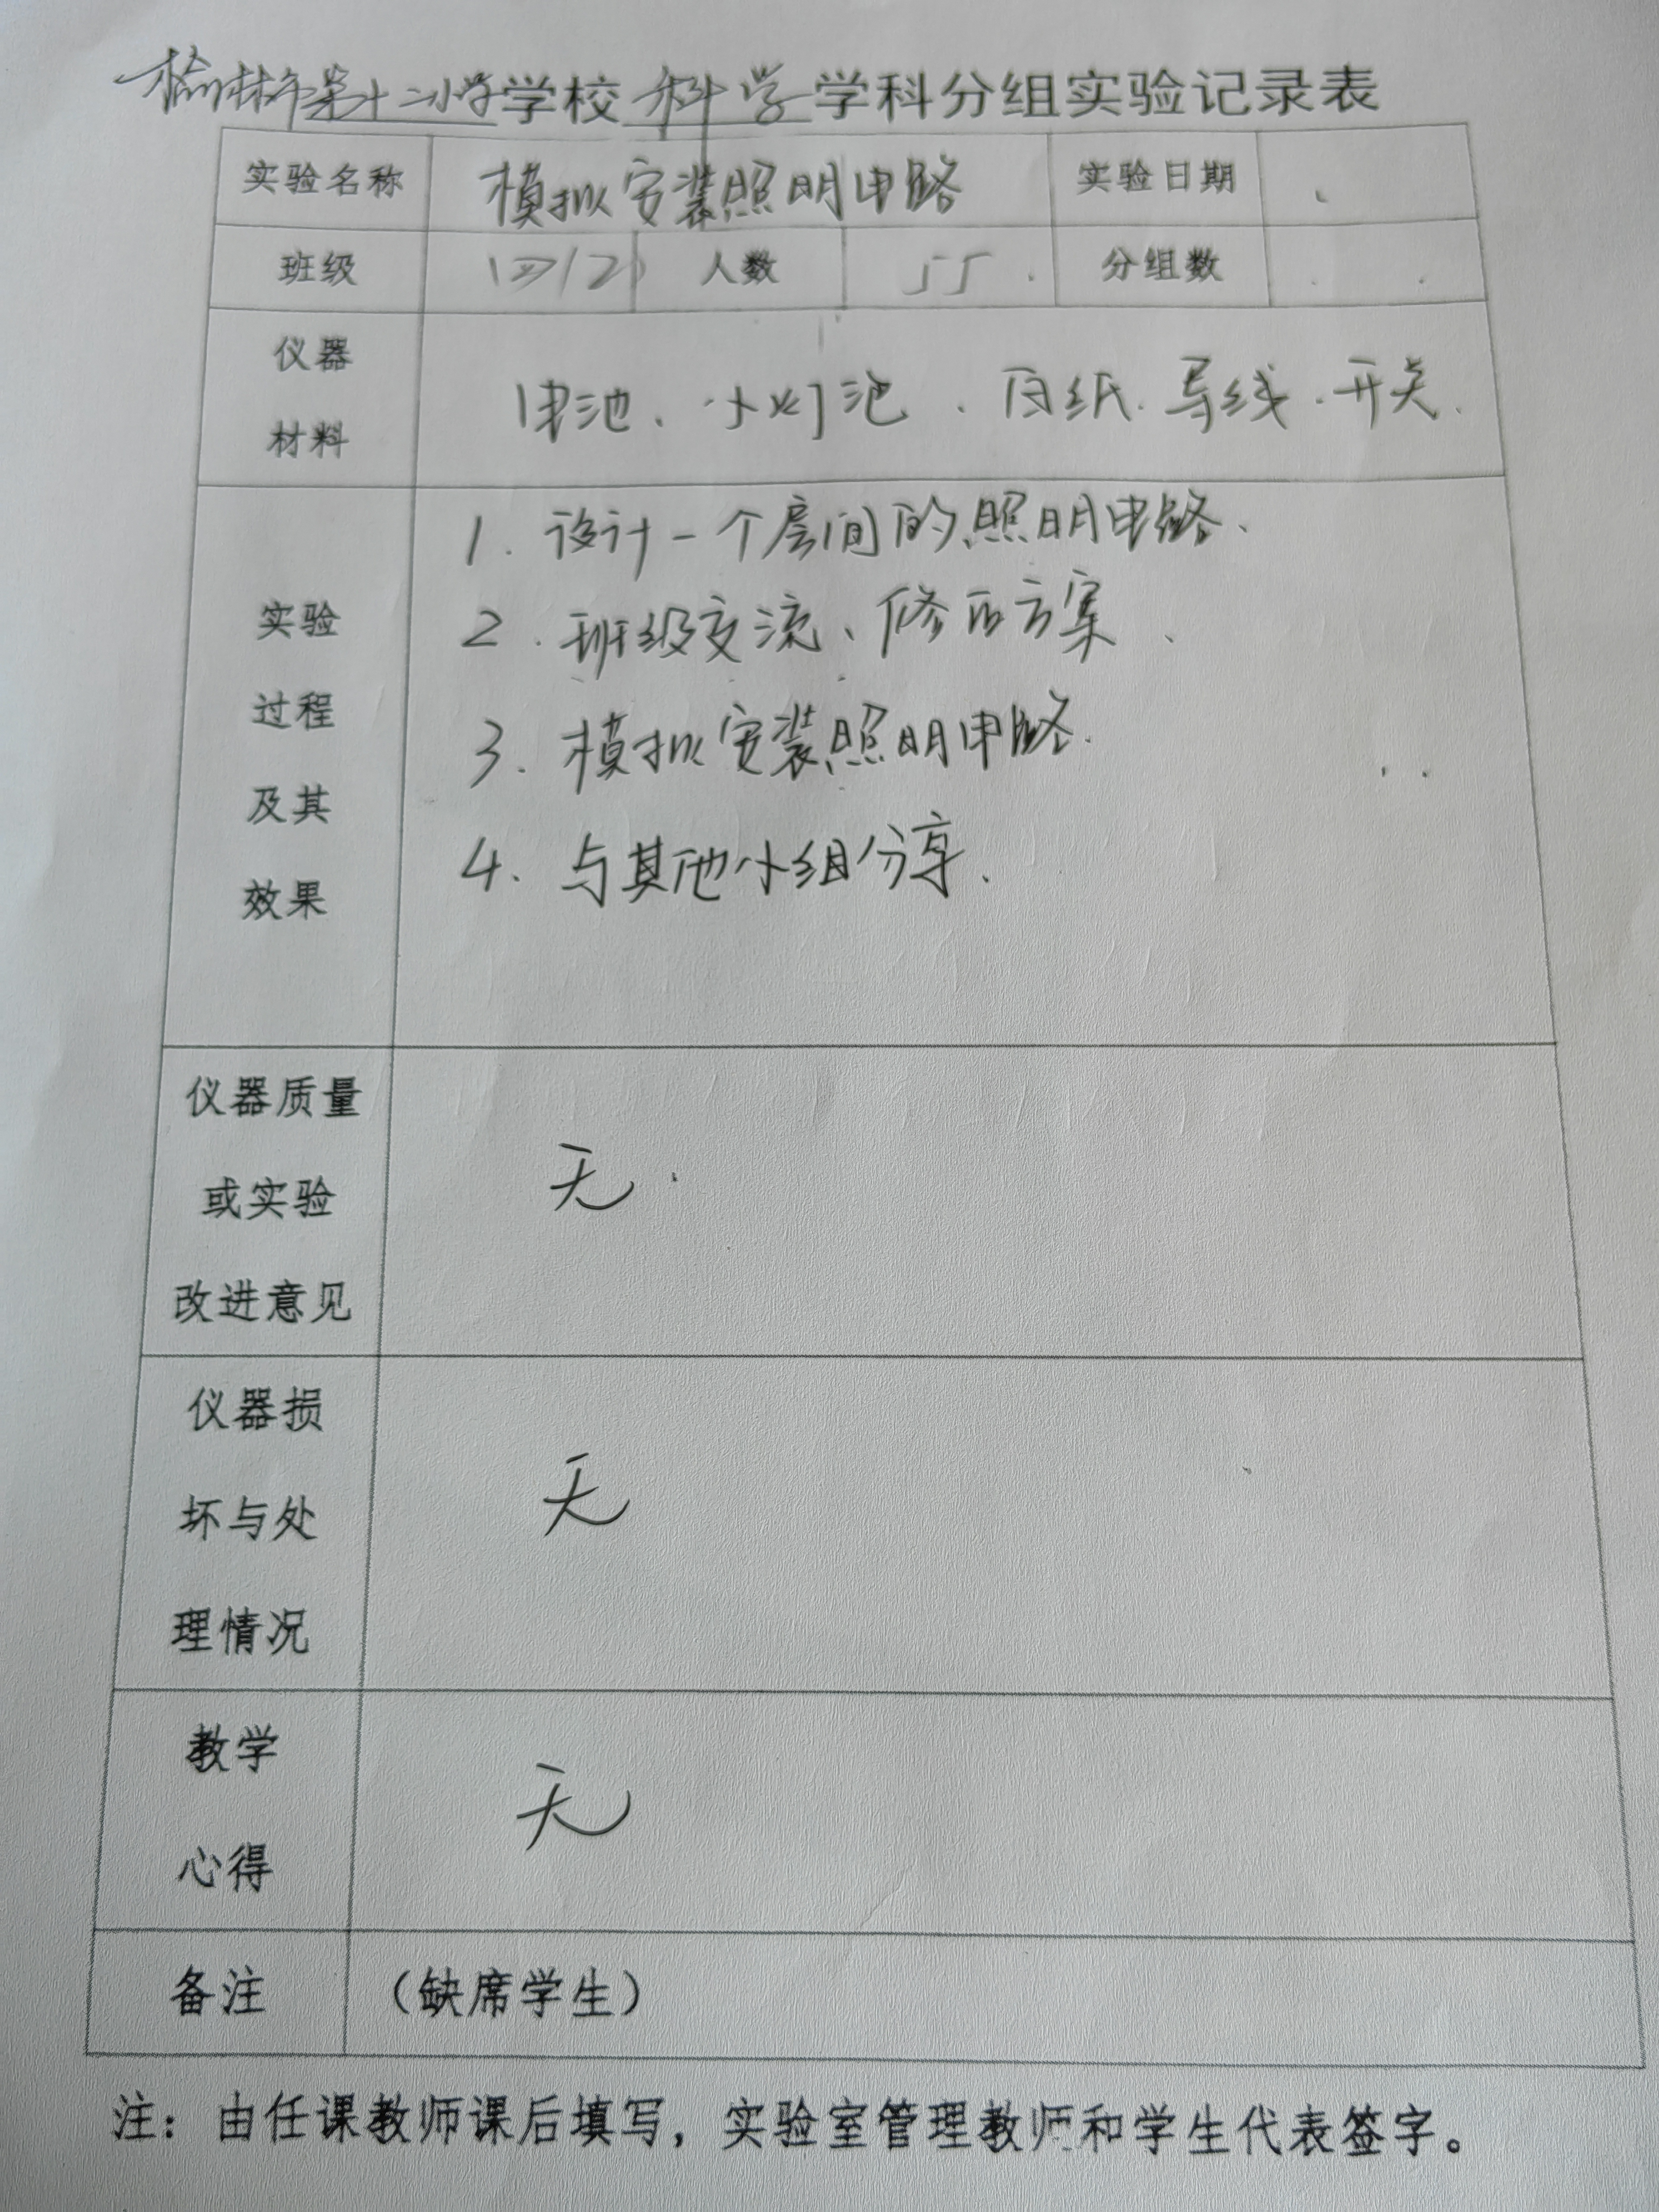 榆林市第十二小学学校科学学科分组实验记录表
实验名称 模拟安装照明电路 实验日期
班级 四(2) 人数 55 分组数
仪器
材料
电池、小灯泡、白纸、导线、开关.
实验
过程
及其
效果
1. 设计一个房间的照明电路、
2. 班级交流、修正方案、
3. 模拟安装照明电路.
4. 与其他小组分享.
仪器质量
或实验
改进意见
无.
仪器损
坏与处
理情况
无
教学
心得
无
备注 (缺席学生)
注: 由任课教师课后填写,实验室管理教师和学生代表签字。